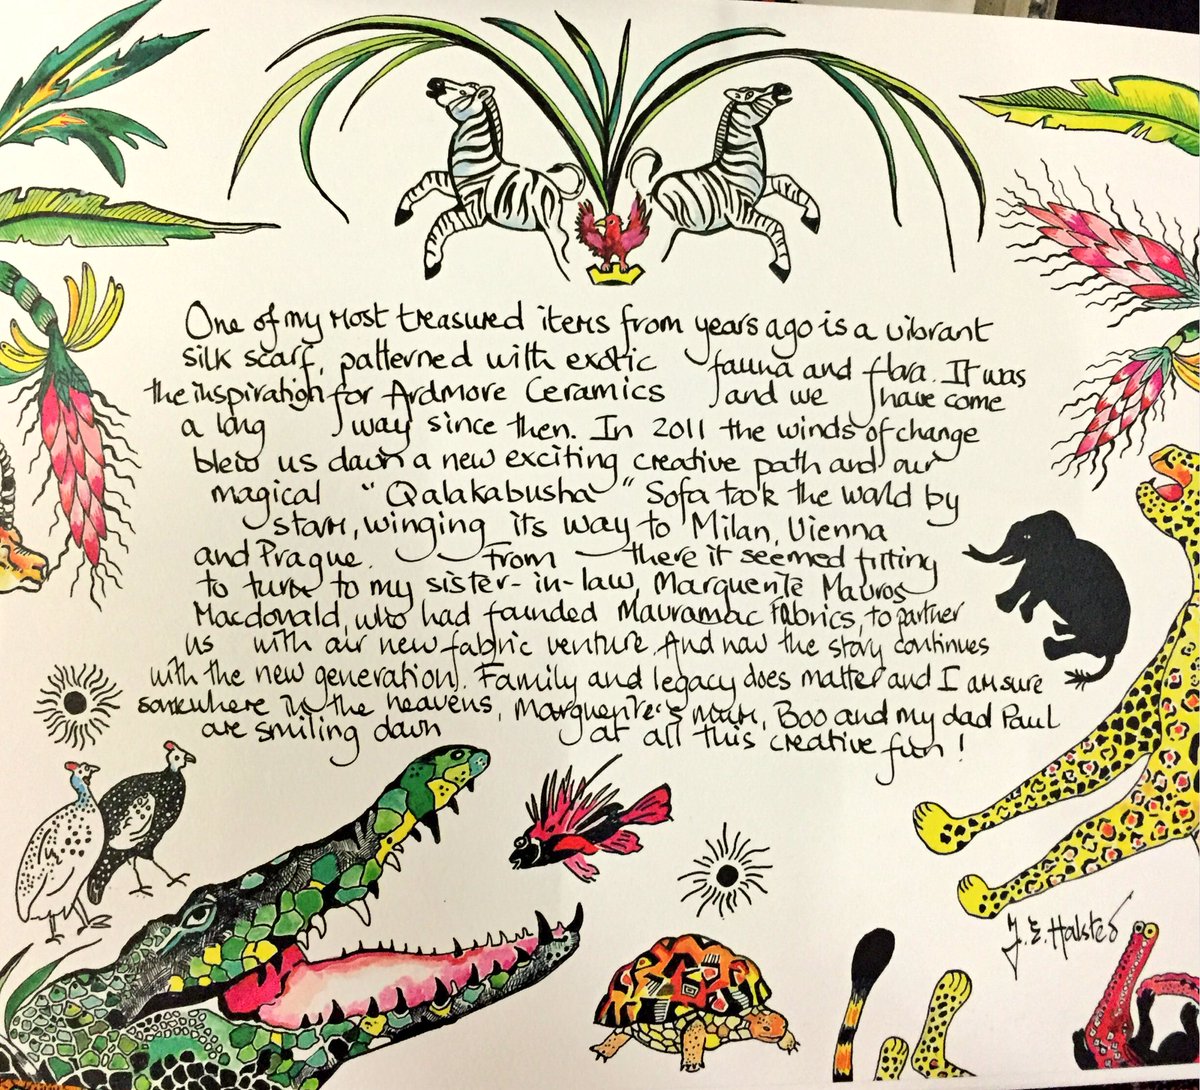 One of my most treasured items from years ago is a vibrant
silk scarf, patterned with exotic fauna and flora. It was
the inspiration for Ardmore Ceramics and we have come
a long way since then. In 2011 the winds of change
blew us down a new exciting creative path and our
magical "Qalakabusha" Sofa took the world by
storm, winging its way to Milan, Vienna
and Prague. From there it seemed fitting
to turn to my sister-in-law, Marguerite Mavros
Macdonald, who had founded Mavramac Fabrics, to partner
us with our new fabric venture. And now the story continues
with the new generation. Family and legacy does matter and I am sure
somewhere in the heavens, Marguerite's mum, Boo and my dad Paul
are smiling down at all this creative fun!
J.E. Halsted